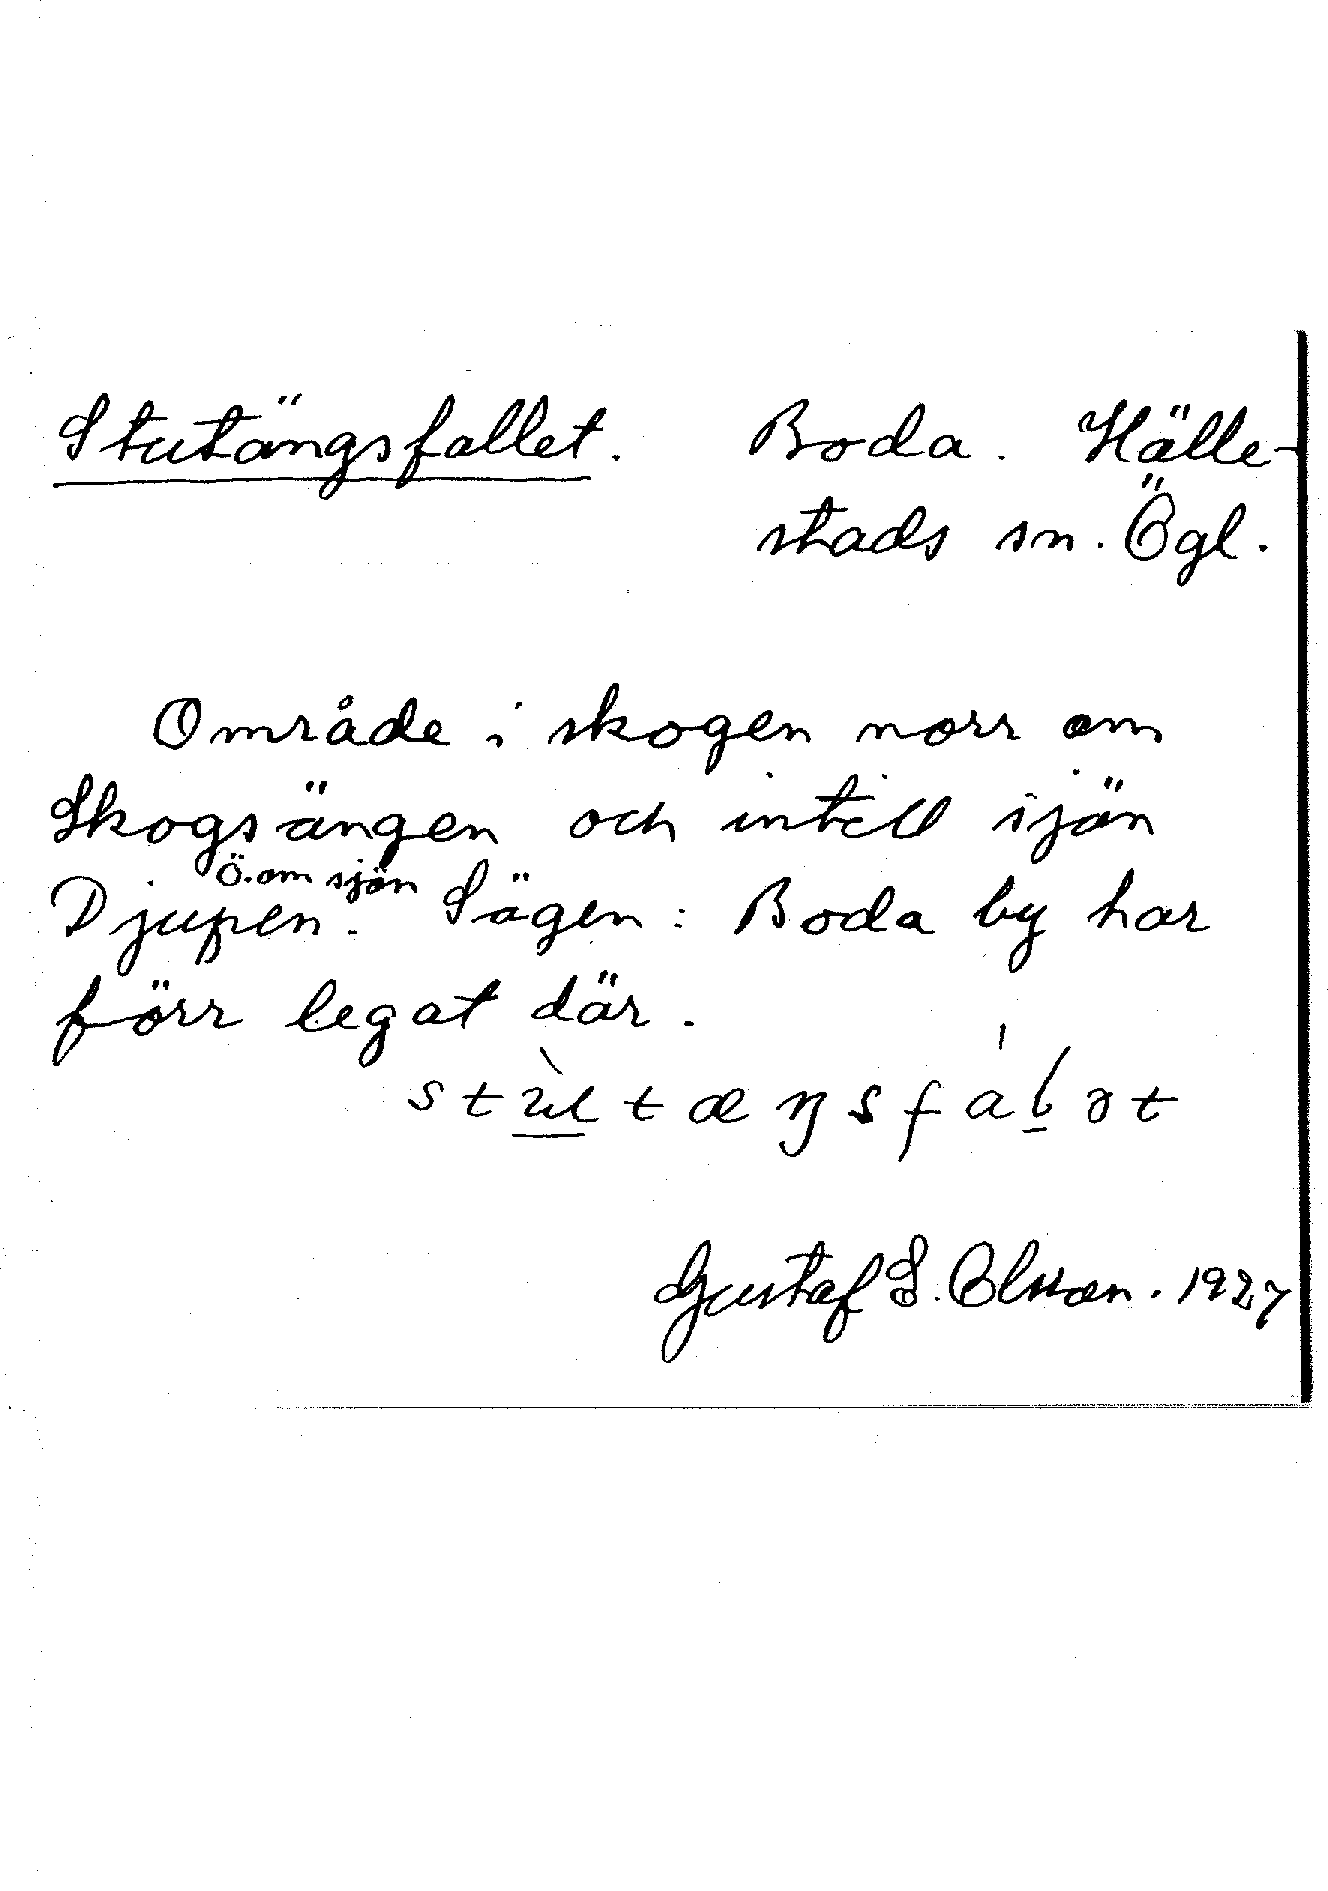 Stutängsfallet. Boda. Hälle-
stads sn. Ögl.
Område i skogen norr om
Skogsängen och intill sjön
Ö. om sjön
Djupen. Sägen: Boda by har
förr legat där.
stùtæŋsfálət
Gustaf S. Olsson. 1927